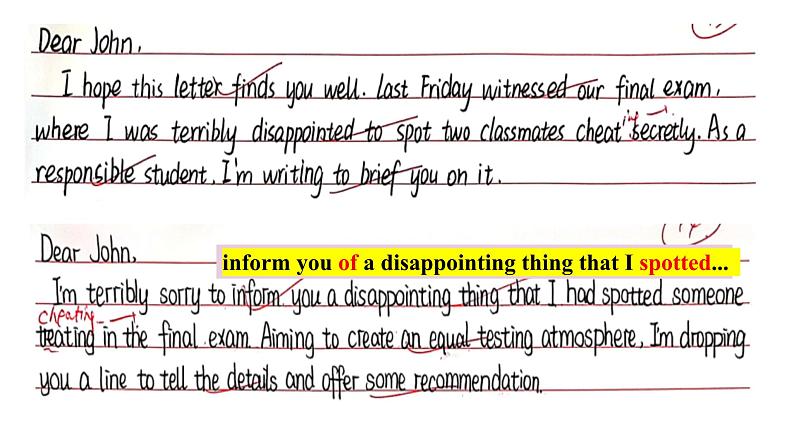 Dear John,
I hope this letter finds you well. Last Friday witnessed our final exam,
where I was terribly disappointed to spot two classmates cheat ing secretly. As a
responsible student, I'm writing to brief you on it.
Dear John,
inform you of a disappointing thing that I spotted...
I'm terribly sorry to inform you a disappointing thing that I had spotted someone
cheating
treating in the final exam. Aiming to create an equal testing atmosphere, I'm dropping
you a line to tell the details and offer some recommendation.